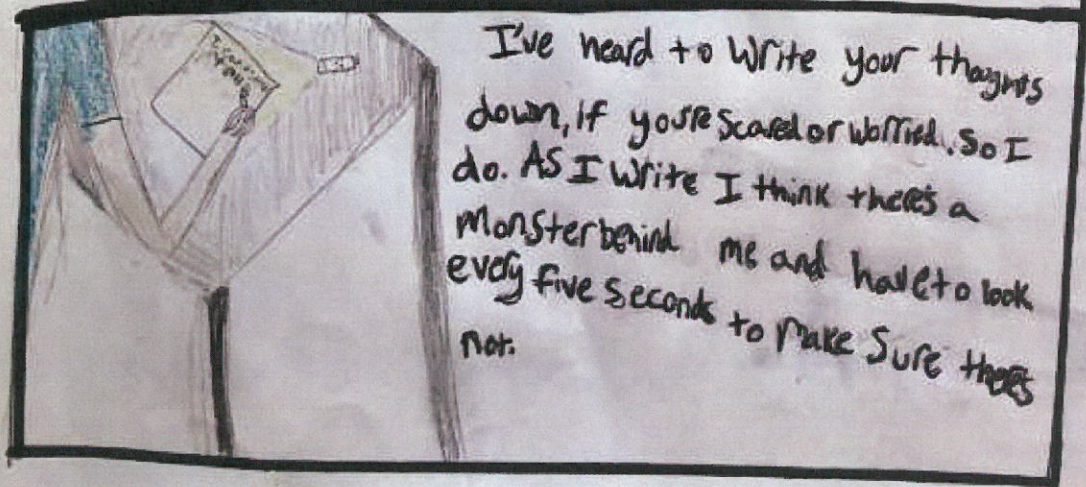 I've heard to write your thoughts
down, if you're scared or worried. So I
do. As I write I think there's a
monster behind me and have to look
every five seconds to make sure there's
not.